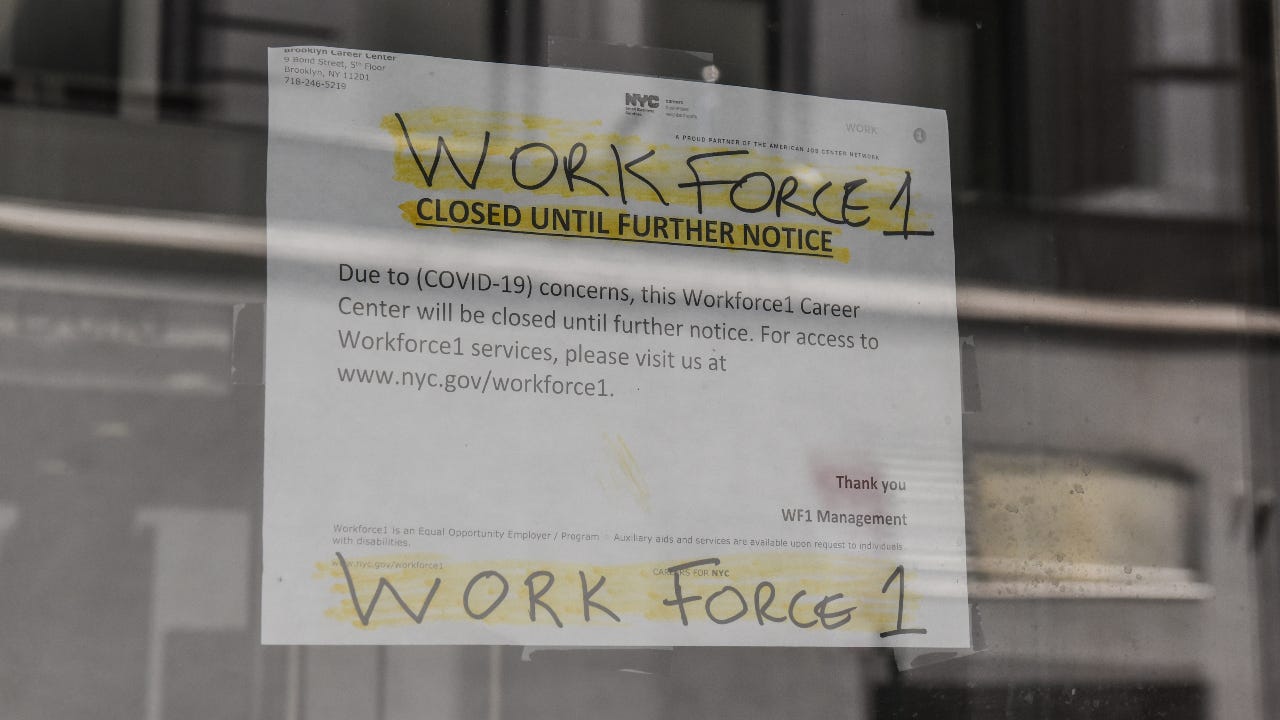 Brooklyn Career Center
9 Bond Street, 5th Floor
Brooklyn, NY 11201
718-246-5219
NYC
careers
WORK
1
A PROUD PARTNER OF THE AMERICAN JOB CENTER NETWORK
WORKFORCE1
CLOSED UNTIL FURTHER NOTICE
Due to (COVID-19) concerns, this Workforce1 Career
Center will be closed until further notice. For access to
Workforce1 services, please visit us at
www.nyc.gov/workforce1.
Thank you
WF1 Management
Workforce1 is an Equal Opportunity Employer / Program Auxiliary aids and services are available upon request to individuals
with disabilities.
www.nyc.gov/workforce1
CAREERS FOR NYC
WORK FORCE 1